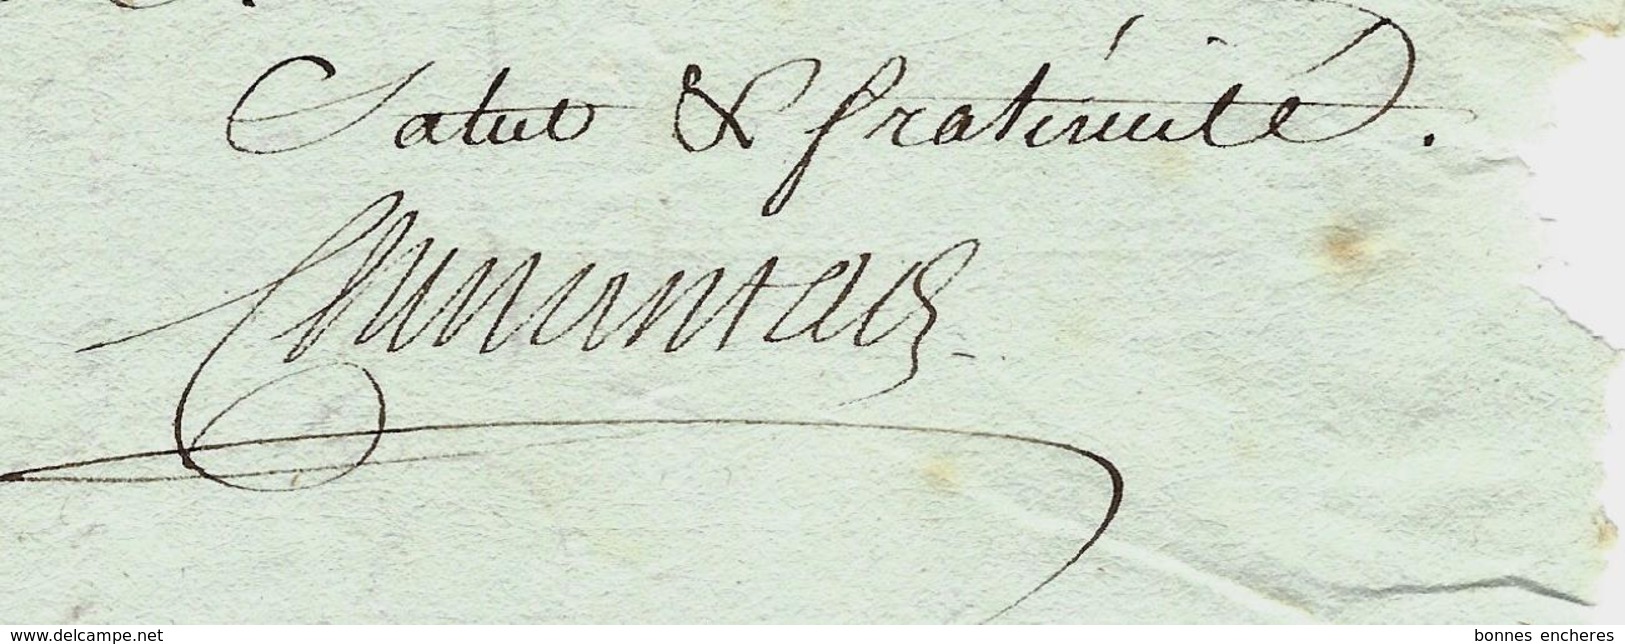 Salut & fraternité.
www.delcampe.net
bonnes encheres